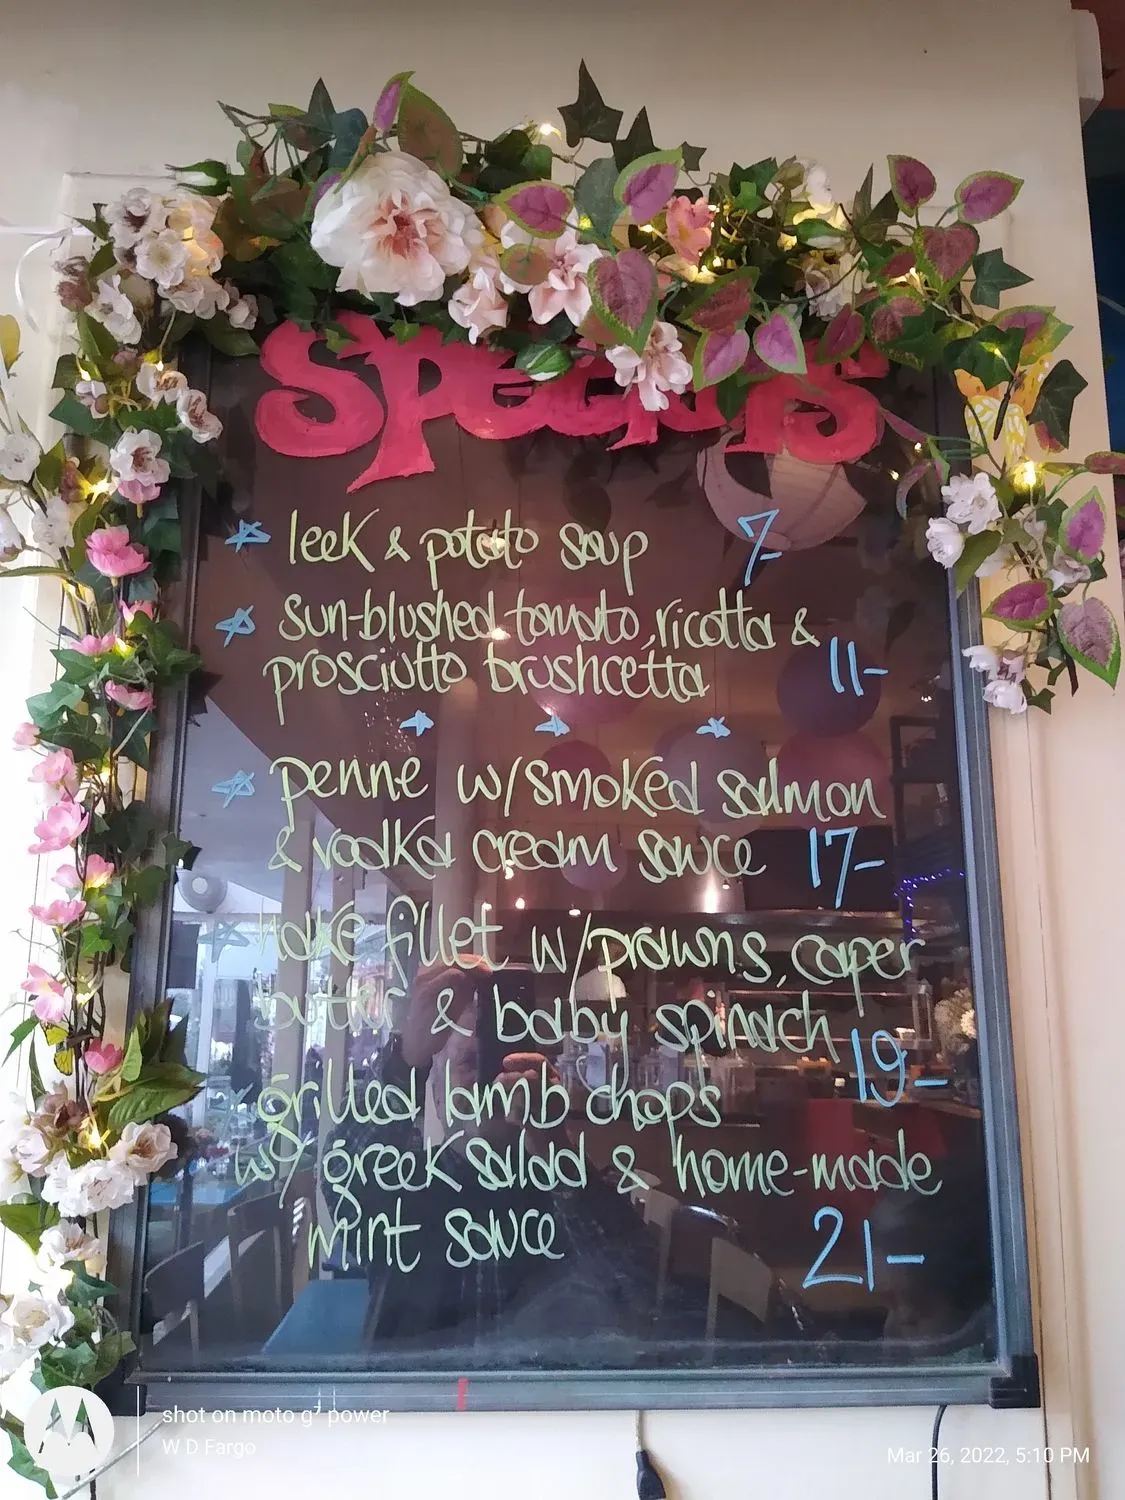 Specials
leek & potato soup 7-
sun-blushed tomato, ricotta &
prosciutto brushcetta 11-
penne w/smoked salmon
& vodka cream sauce 17-
hake fillet w/prawns, caper
butter & baby spinach 19-
grilled lamb chops
w/ greek salad & home-made
mint sauce 21-
shot on moto g⁷ power
W D Fargo
Mar 26, 2022, 5:10 PM